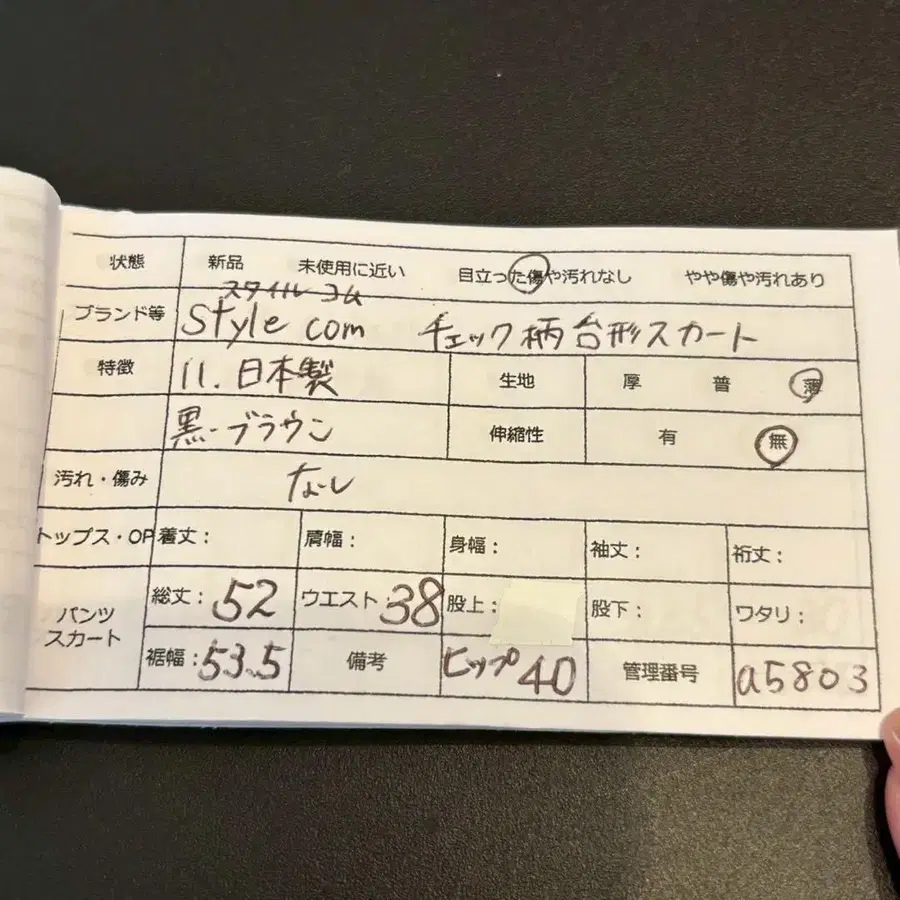 状態 新品 未使用に近い 目立った傷や汚れなし やや傷や汚れあり
スタイル コム
ブランド等 Style com チェック柄台形スカート
特徴 11. 日本製 生地 厚 普 薄
黒・ブラウン 伸縮性 有 無
汚れ・傷み なし
トップス・OP 着丈: 肩幅: 身幅: 袖丈: 裄丈:
パンツ スカート 総丈: 52 ウエスト: 38 股上: 股下: ワタリ:
裾幅: 53.5 備考 ヒップ40 管理番号 a5803